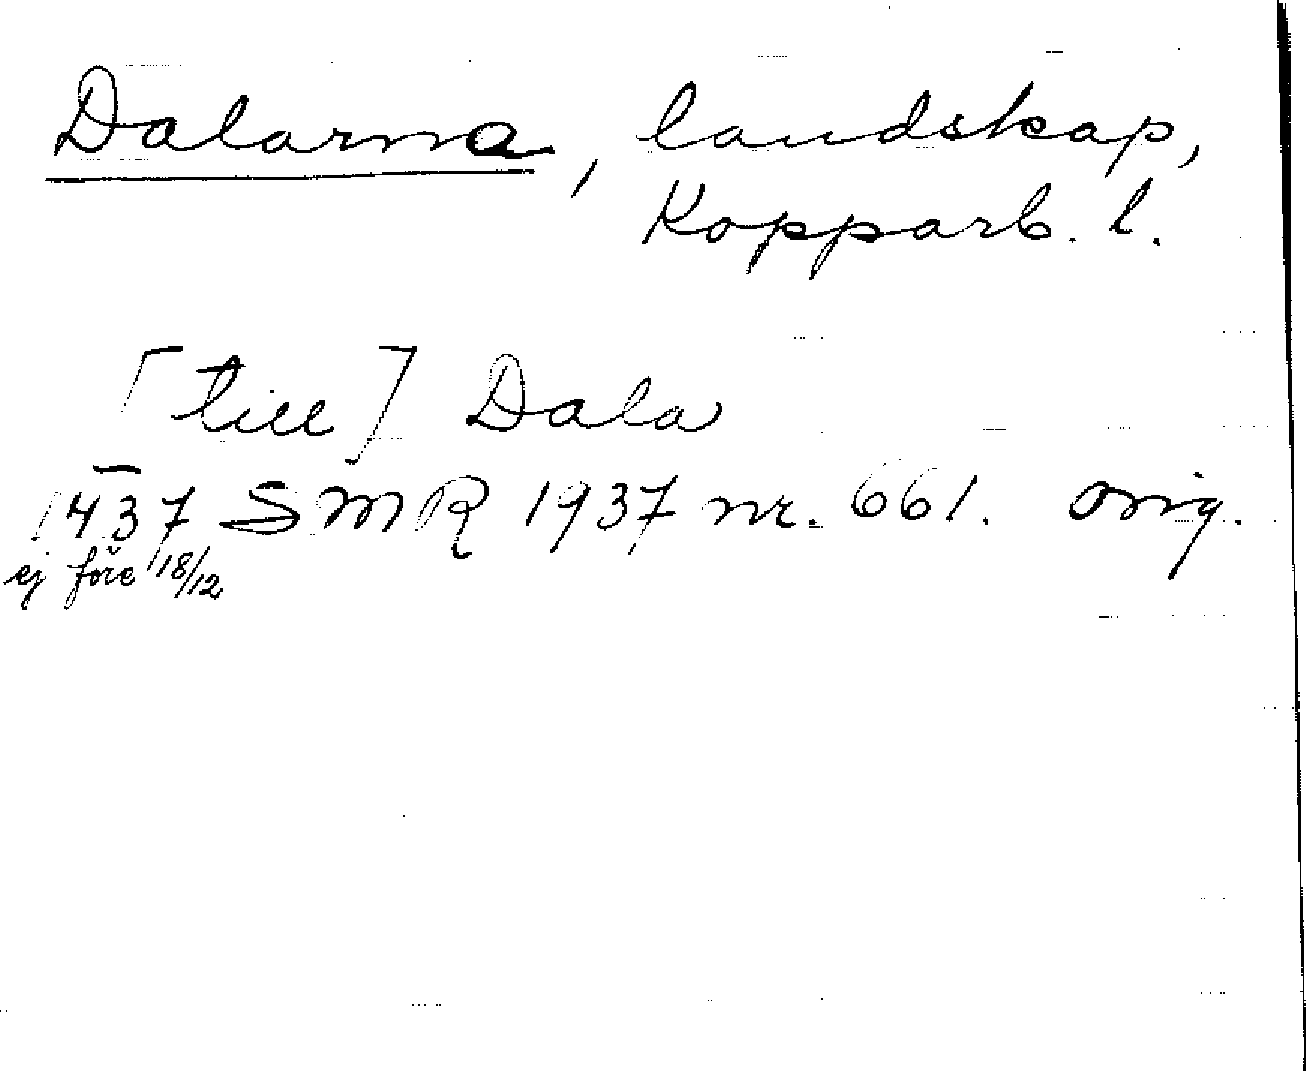 Dalarna, landskap,
Kopparb. l.
[till] Dala
1437 SMR 1937 nr. 661. Orig.
ej före 18/12